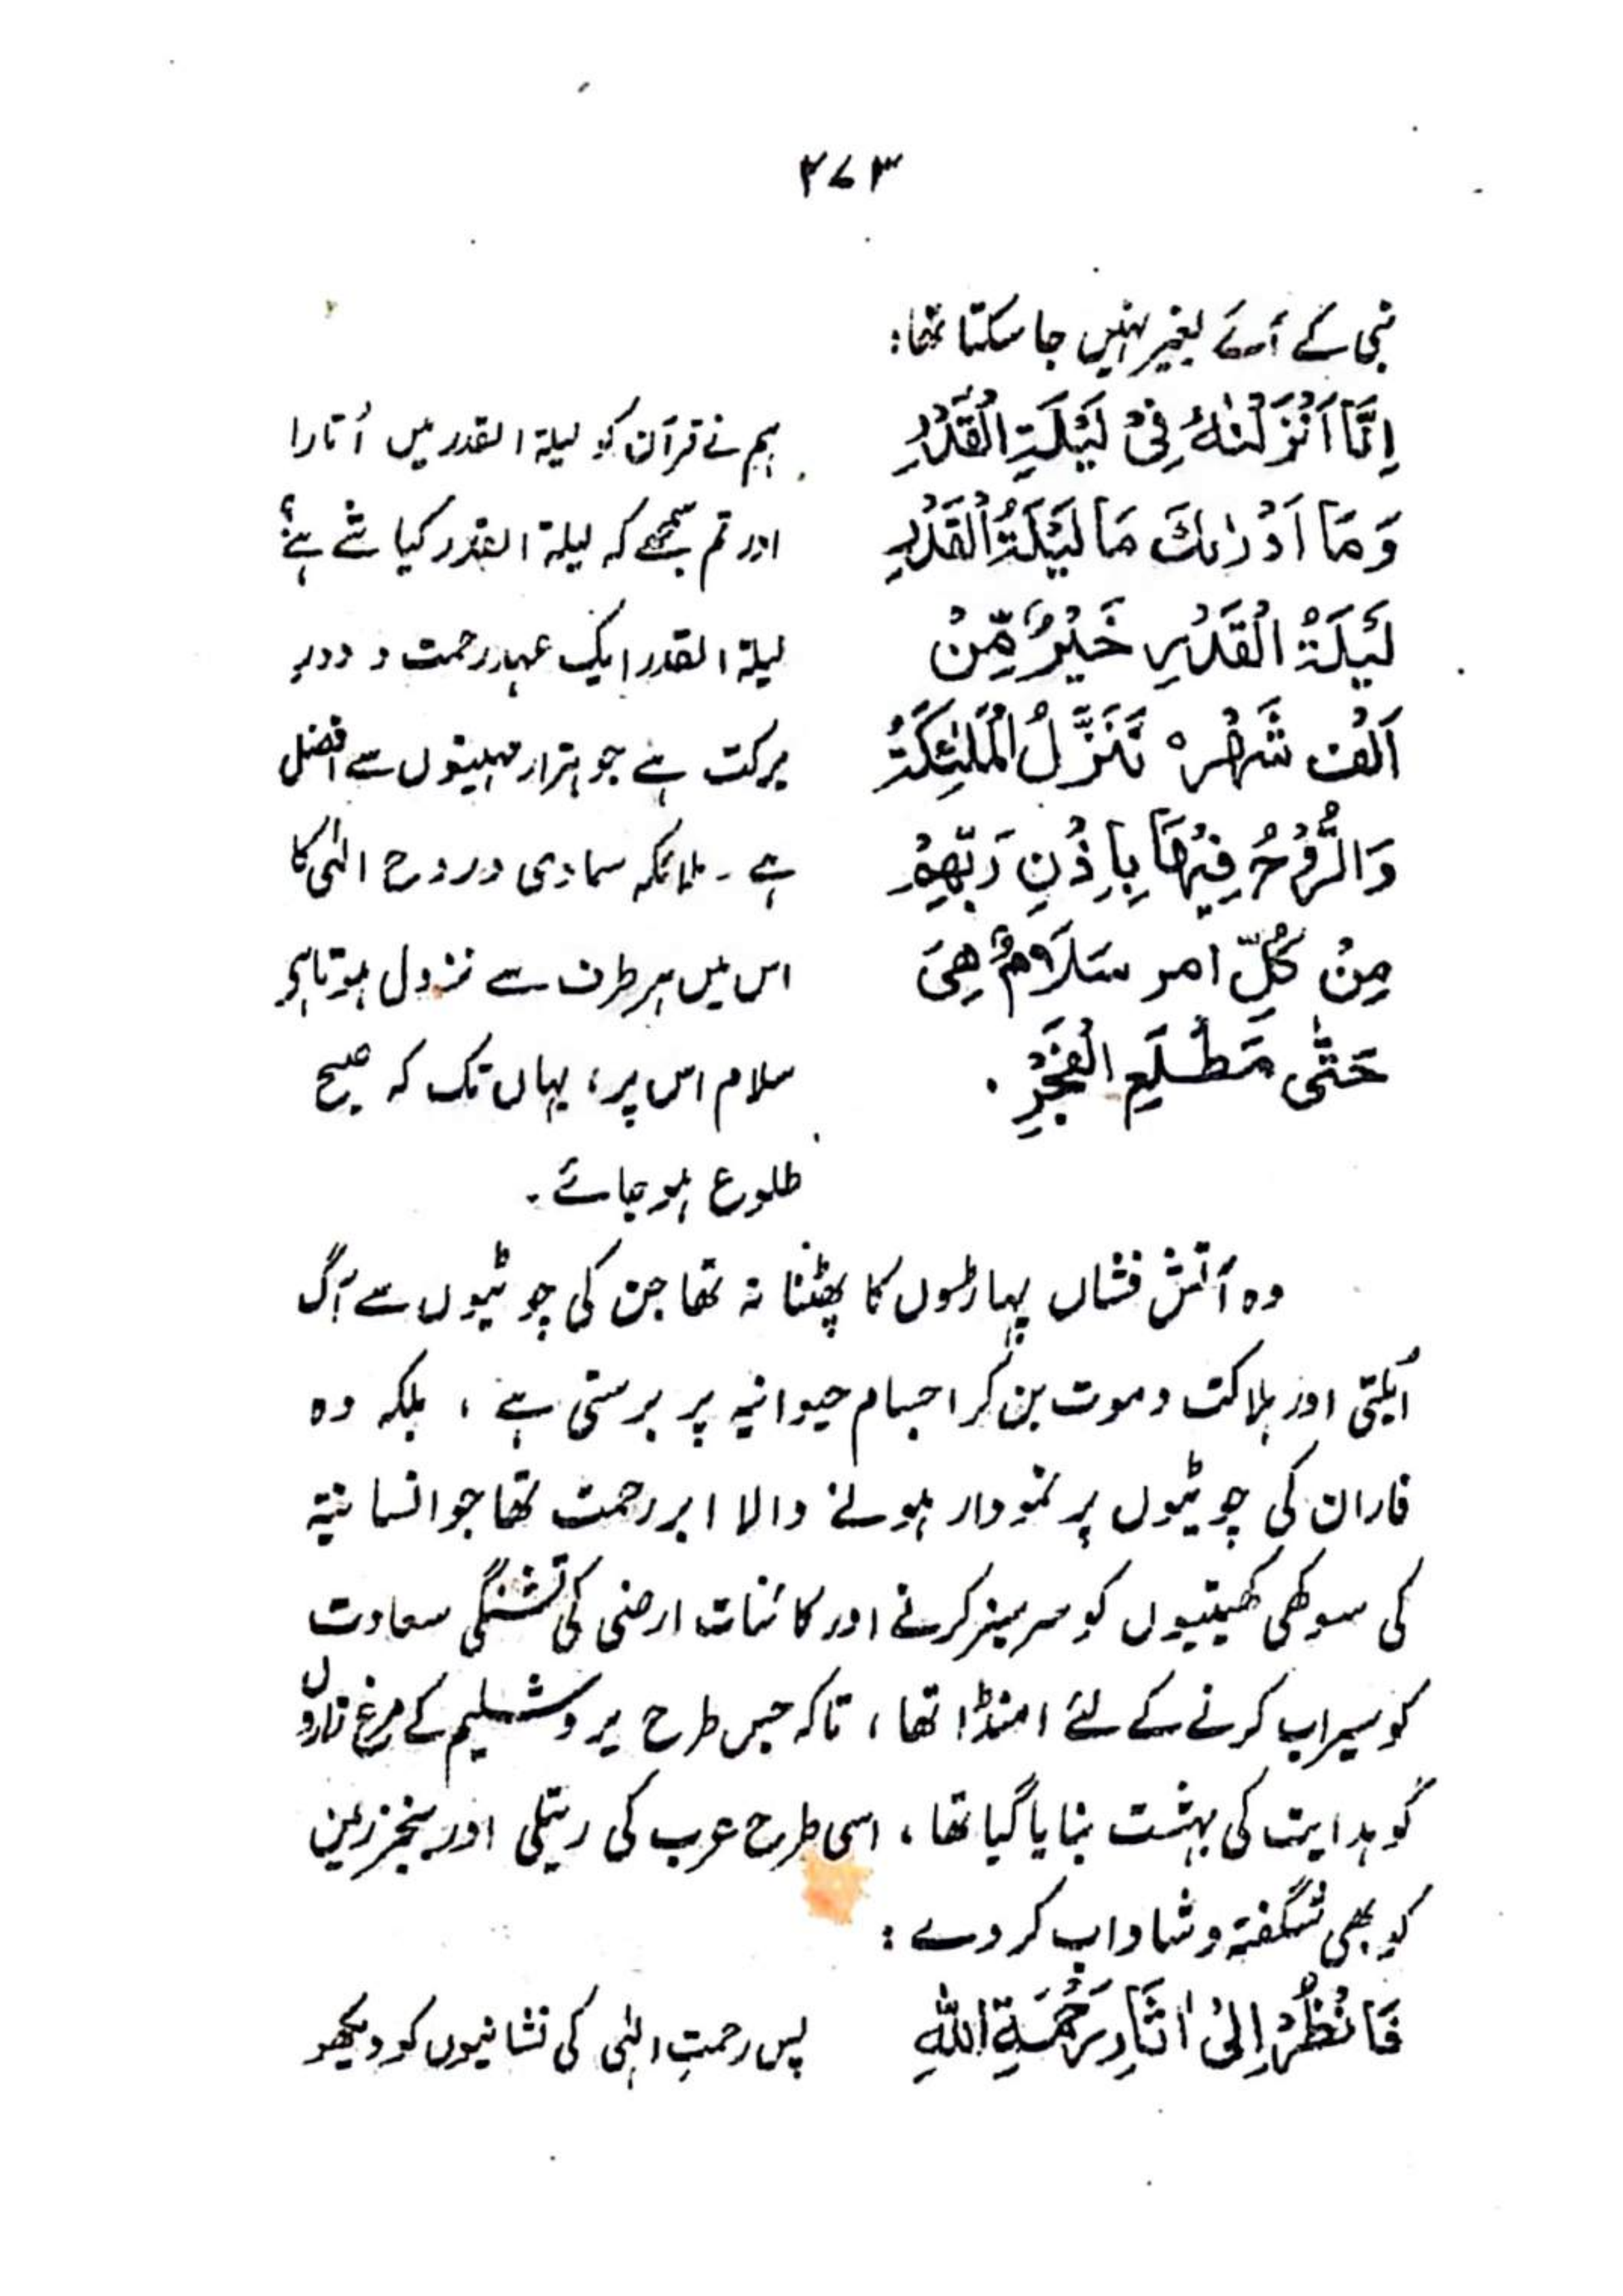 ۲۷۳
نبی کے آئے بغیر نہیں جا سکتا تھا:
اِنَّا اَنْزَلْنٰهُ فِیْ لَیْلَةِ الْقَدْرِ
ہم نے قرآن کو لیلۃ القدر میں اُتارا
وَ مَا اَدْرٰىكَ مَا لَیْلَةُ الْقَدْرِ
اور تم سمجھے کہ لیلۃ القدر کیا شے ہے؟
لَیْلَةُ الْقَدْرِ خَیْرٌ مِّنْ
لیلۃ القدر ایک عہد رحمت و دور
اَلْفِ شَهْرٍ ه تَنَزَّلُ الْمَلٰٓئِكَةُ
برکت ہے جو ہزار مہینوں سے افضل
وَ الرُّوْحُ فِیْهَا بِاِذْنِ رَبِّهِمْ
ہے ۔ ملائکہ سماوی و روح الٰہی کا
مِنْ كُلِّ امر سَلَامٌ هِیَ
اس میں ہر طرف سے نزول ہوتا ہو
حَتّٰى مَطْلَعِ الْفَجْرِ .
سلام اس پر، یہاں تک کہ صبح
طلوع ہو جائے ۔
وہ آتش فشاں پہاڑوں کا پھٹنا نہ تھا جن کی چوٹیوں سے آگ
اُبلتی اور ہلاکت و موت بن کر اجسام حیوانیہ پر برستی ہے ، بلکہ وہ
فاران کی چوٹیوں پر نمودار ہونے والا ابر رحمت تھا جو انسانیۃ
کی سوکھی کھیتیوں کو سرسبز کرنے اور کائنات ارضی کی تشنگی سعادت
کو سیراب کرنے کے لئے امنڈا تھا ، تاکہ جس طرح یروشلیم کے مرغ زاروں
کو ہدایت کی بہشت بنایا گیا تھا ، اسی طرح عرب کی ریتلی اور بنجر زمین
کو بھی شگفتہ و شاداب کر دے :
فَانْظُرْ اِلٰى اٰثَارِ رَحْمَةِ اللّٰهِ
پس رحمتِ الٰہی کی نشانیوں کو دیکھو